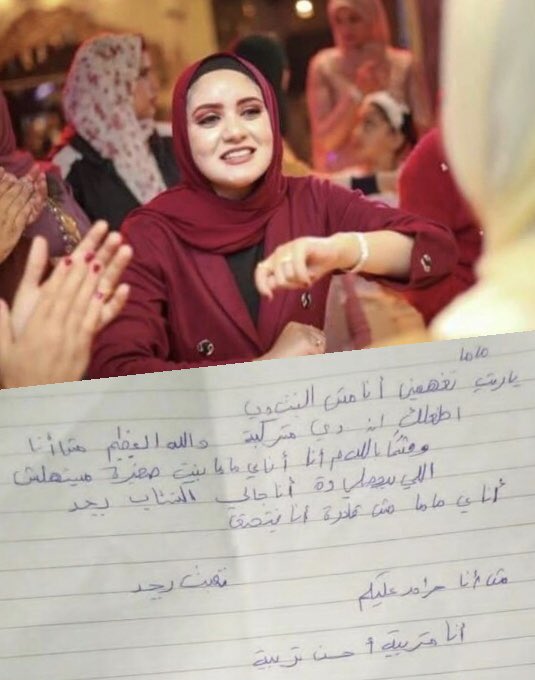 ماما
ياريت تفهميني أنا مش البنت دي
اطعلك ان دي متركبة والله العظيم متاأنا
وقتمًا بالله م أنا أناي ماما بنت صغيرة مينهلش
اللي بيحصلي دة أنا جالي اكتئاب بجد
أناي ماما مش قادرة أنا بتخنق
تعبت بجد
مش أنا حرام عليكم
أنا متربية أحسن تربية